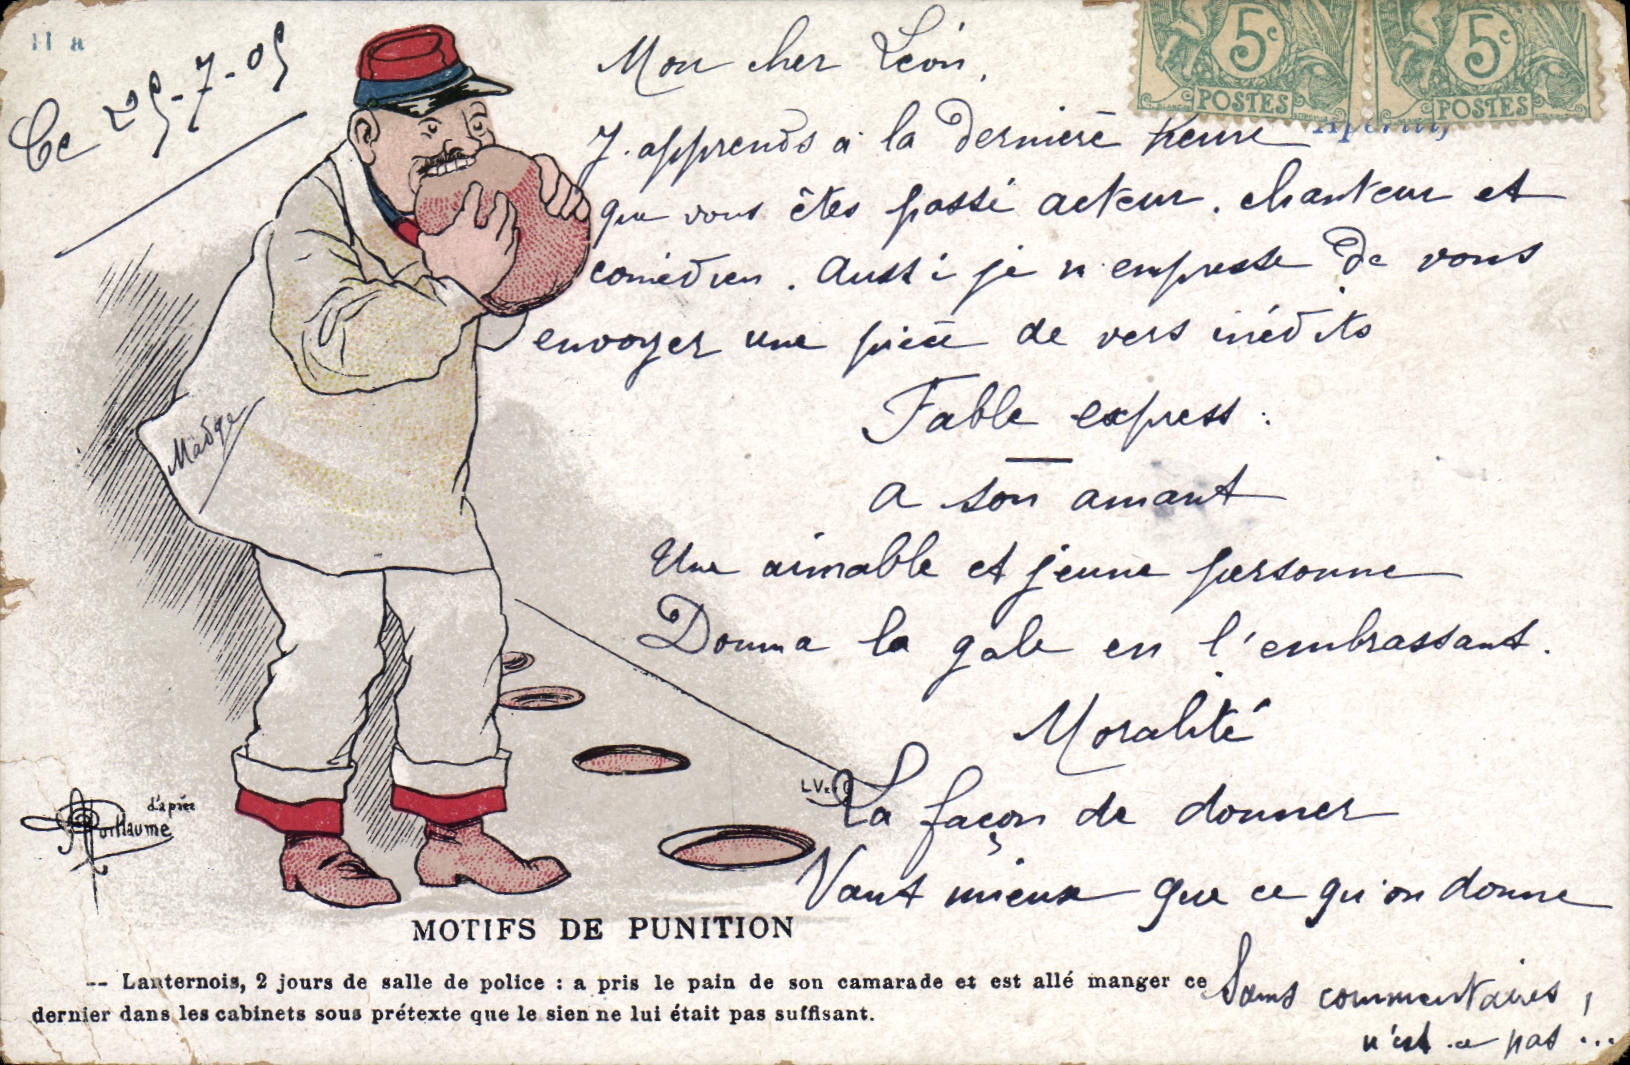 11 a
Ce 25-7-05
5c
5c
POSTES
POSTES
Apéritif,
Mon cher Léon,
J'apprends à la dernière heure
que vous êtes passé acteur, chanteur et
comédien. Aussi je m'empresse de vous
envoyer une pièce de vers inédits
Fable express :
A son amant
Une aimable et jeune personne
Donna la gale en l'embrassant.
Moralité
La façon de donner
Vaut mieux que ce qu'on donne
Sans commentaires,
n'est-ce pas ...
Madge
d'après
A Guillaume
MOTIFS DE PUNITION
-- Lanternois, 2 jours de salle de police : a pris le pain de son camarade et est allé manger ce
dernier dans les cabinets sous prétexte que le sien ne lui était pas suffisant.